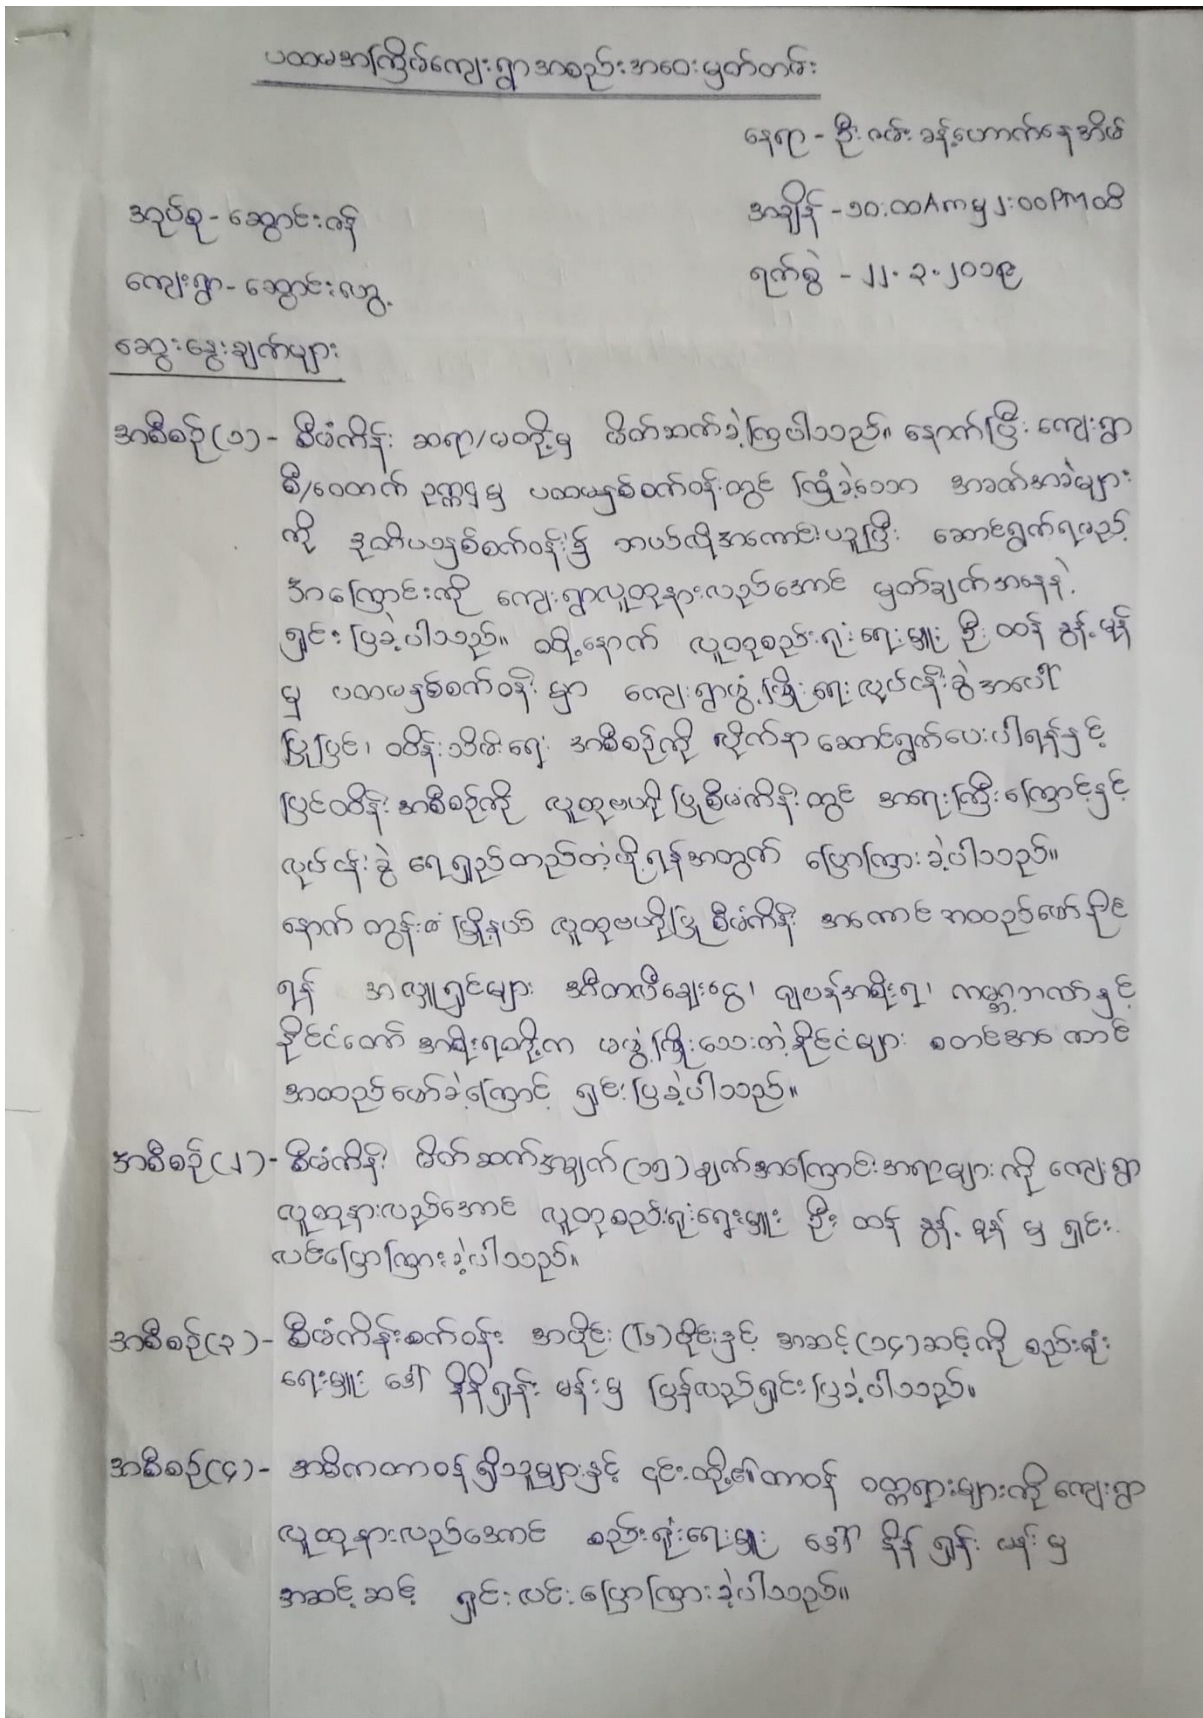 ပထမအကြိမ်ကျေးရွာအစည်းအဝေးမှတ်တမ်း
နေရာ - ဦးဇမ်းခန့်ဟောက်နေအိမ်
အုပ်စု - ဆွောင်းဇန် အချိန် - ၁၀:၀၀Amမှ၂:၀၀PMထိ
ကျေးရွာ - ဆွောင်းလျှ့ ရက်စွဲ - ၂၂.၃.၂၀၁၉
ဆွေးနွေးချက်များ
အစီစဉ်(၁) - စီမံကိန်း ဆရာ/မတို့မှ မိတ်ဆက်ခဲ့ကြပါသည်။ နောက်ပြီး ကျေးရွာ
စီ/ထောက် ဥက္ကဌမှ ပထမနှစ်စက်ဝန်းတွင် ကြုံခဲ့သော အခက်အခဲများ
ကို ဒုတိယနှစ်စက်ဝန်း၌ ဘယ်လိုအကောင်းယူပြီး ဆောင်ရွက်ရမည့်
အကြောင်းကို ကျေးရွာလူထုနားလည်အောင် မှတ်ချက်အနေနဲ့
ရှင်းပြခဲ့ပါသည်။ ထို့နောက် လူထုစည်းရုံးရေးမှူး ဦးထန် နွန့်မုန်
မှ ပထမနှစ်စက်ဝန်းမှာ ကျေးရွာဖွံ့ဖြိုးရေးလုပ်ငန်းခွဲအပေါ်
ပြုပြင်၊ ထိန်းသိမ်းရေး အစီစဉ်ကို လိုက်နာဆောင်ရွက်ပေးပါရန်နှင့်
ပြင်ထိန်းအစီစဉ်ကို လူထုဗဟိုပြုစီမံကိန်းတွင် အရေးကြီးကြောင့်နှင့်
လုပ်ငန်းခွဲ ရေရှည်တည်တံ့ဖို့ရန်အတွက် ပြောကြားခဲ့ပါသည်။
နောက် တွန်းဇံမြို့နယ် လူထုဗဟိုပြုစီမံကိန်း အကောင်အထည်ဖော်နိုင်
ရန် အလှူရှင်များ အီတလီချေးငွေ၊ ဂျပန်အစိုးရ၊ ကမ္ဘာ့ဘဏ်နှင့်
နိုင်ငံတော်အစိုးရတို့က မဖွံ့ဖြိုးသေးတဲ့နိုင်ငံများ စတင်အကောင်
အထည်ဖော်ခဲ့ကြောင့် ရှင်းပြခဲ့ပါသည်။
အစီစဉ်(၂) - စီမံကိန်း မိတ်ဆက်အချက်(၁၅)ချက်အကြောင်းအရာများကို ကျေးရွာ
လူထုနားလည်အောင် လူထုစည်းရုံးရေးမှူး ဦးထန် နွန့် မုန် မှ ရှင်း
လင်းပြောကြားခဲ့ပါသည်။
အစီစဉ်(၃) - စီမံကိန်းစက်ဝန်း အပိုင်း(၆)ပိုင်းနှင့် အဆင့်(၁၄)ဆင့်ကို စည်းရုံး
ရေးမှူး ဒေါ် နိန်ရှန်း မန်းမှ ပြန်လည်ရှင်းပြခဲ့ပါသည်။
အစီစဉ်(၄) - အဓိကတာဝန်ရှိသူများနှင့် ၎င်းတို့၏တာဝန် ဝတ္တရားများကိုကျေးရွာ
လူထုနားလည်အောင် စည်းရုံးရေးမှူး ဒေါ် နိန် ရှန်း မန်း မှ
အဆင့်ဆင့် ရှင်းလင်းပြောကြားခဲ့ပါသည်။